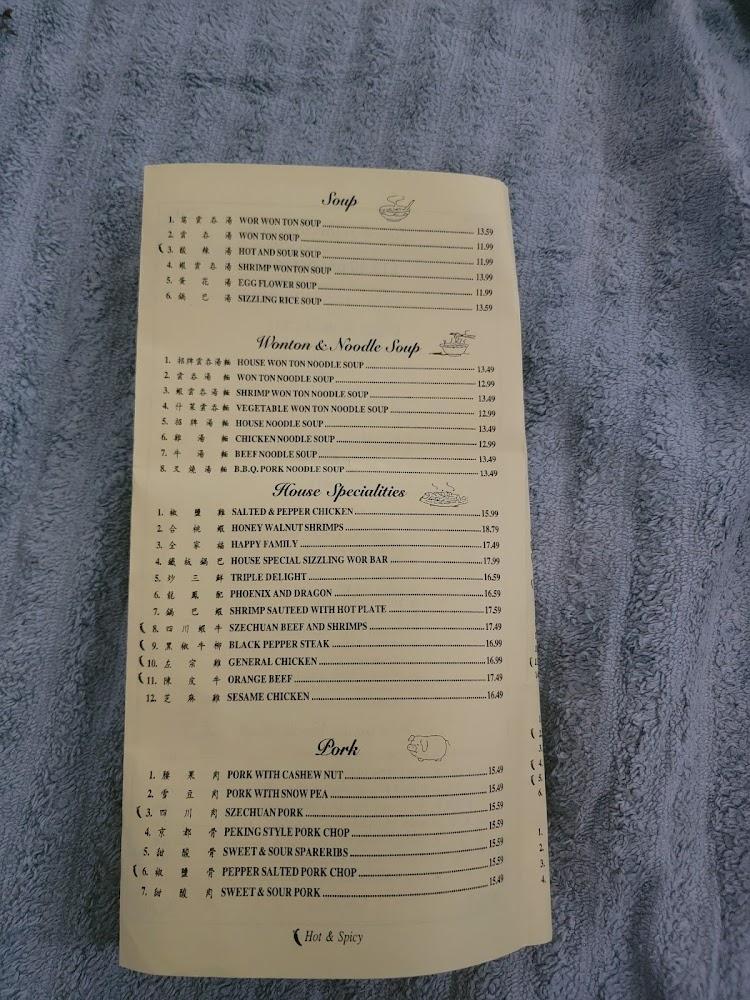 Soup
1. 窩雲吞湯 WOR WON TON SOUP 13.59
2. 雲吞湯 WON TON SOUP 11.99
3. 酸辣湯 HOT AND SOUR SOUP 11.99
4. 蝦雲吞湯 SHRIMP WONTON SOUP 13.99
5. 蛋花湯 EGG FLOWER SOUP 11.99
6. 鍋巴湯 SIZZLING RICE SOUP 13.59
Wonton & Noodle Soup
1. 招牌雲吞湯麵 HOUSE WON TON NOODLE SOUP 13.49
2. 雲吞湯麵 WON TON NOODLE SOUP 12.99
3. 蝦雲吞湯麵 SHRIMP WON TON NOODLE SOUP 13.49
4. 什菜雲吞麵 VEGETABLE WON TON NOODLE SOUP 12.99
5. 招牌湯麵 HOUSE NOODLE SOUP 13.49
6. 雞湯麵 CHICKEN NOODLE SOUP 12.99
7. 牛湯麵 BEEF NOODLE SOUP 13.49
8. 叉燒湯麵 B.B.Q. PORK NOODLE SOUP 13.49
House Specialities
1. 椒鹽雞 SALTED & PEPPER CHICKEN 15.99
2. 合桃蝦 HONEY WALNUT SHRIMPS 18.79
3. 全家福 HAPPY FAMILY 17.49
4. 鐵板鍋巴 HOUSE SPECIAL SIZZLING WOR BAR 17.99
5. 炒三鮮 TRIPLE DELIGHT 16.59
6. 龍鳳配 PHOENIX AND DRAGON 16.59
7. 鍋巴蝦 SHRIMP SAUTEED WITH HOT PLATE 17.59
8. 四川蝦牛 SZECHUAN BEEF AND SHRIMPS 17.49
9. 黑椒牛柳 BLACK PEPPER STEAK 16.99
10. 左宗雞 GENERAL CHICKEN 16.99
11. 陳皮牛 ORANGE BEEF 17.49
12. 芝麻雞 SESAME CHICKEN 16.49
Pork
1. 腰果肉 PORK WITH CASHEW NUT 15.49
2. 雪豆肉 PORK WITH SNOW PEA 15.49
3. 四川肉 SZECHUAN PORK 15.59
4. 京都骨 PEKING STYLE PORK CHOP 15.59
5. 甜酸骨 SWEET & SOUR SPARERIBS 15.59
6. 椒鹽骨 PEPPER SALTED PORK CHOP 15.59
7. 甜酸肉 SWEET & SOUR PORK 15.49
Hot & Spicy